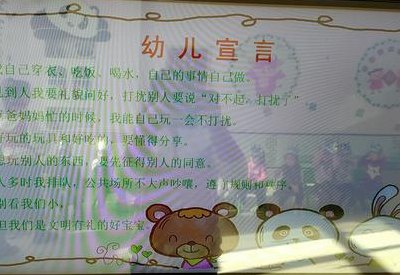 幼儿宣言
自己穿衣、吃饭、喝水，自己的事情自己做。
到人我要礼貌问好，打扰别人要说“对不起，打扰了”
爸妈妈忙的时候，我能自己玩一会不打扰。
玩的玩具和好吃的，要懂得分享。
玩别人的东西，要先征得别人的同意。
人多时我排队，公共场所不大声吵嚷，遵守规则和秩序。
别看我们小，
但我们是文明有礼的好宝宝